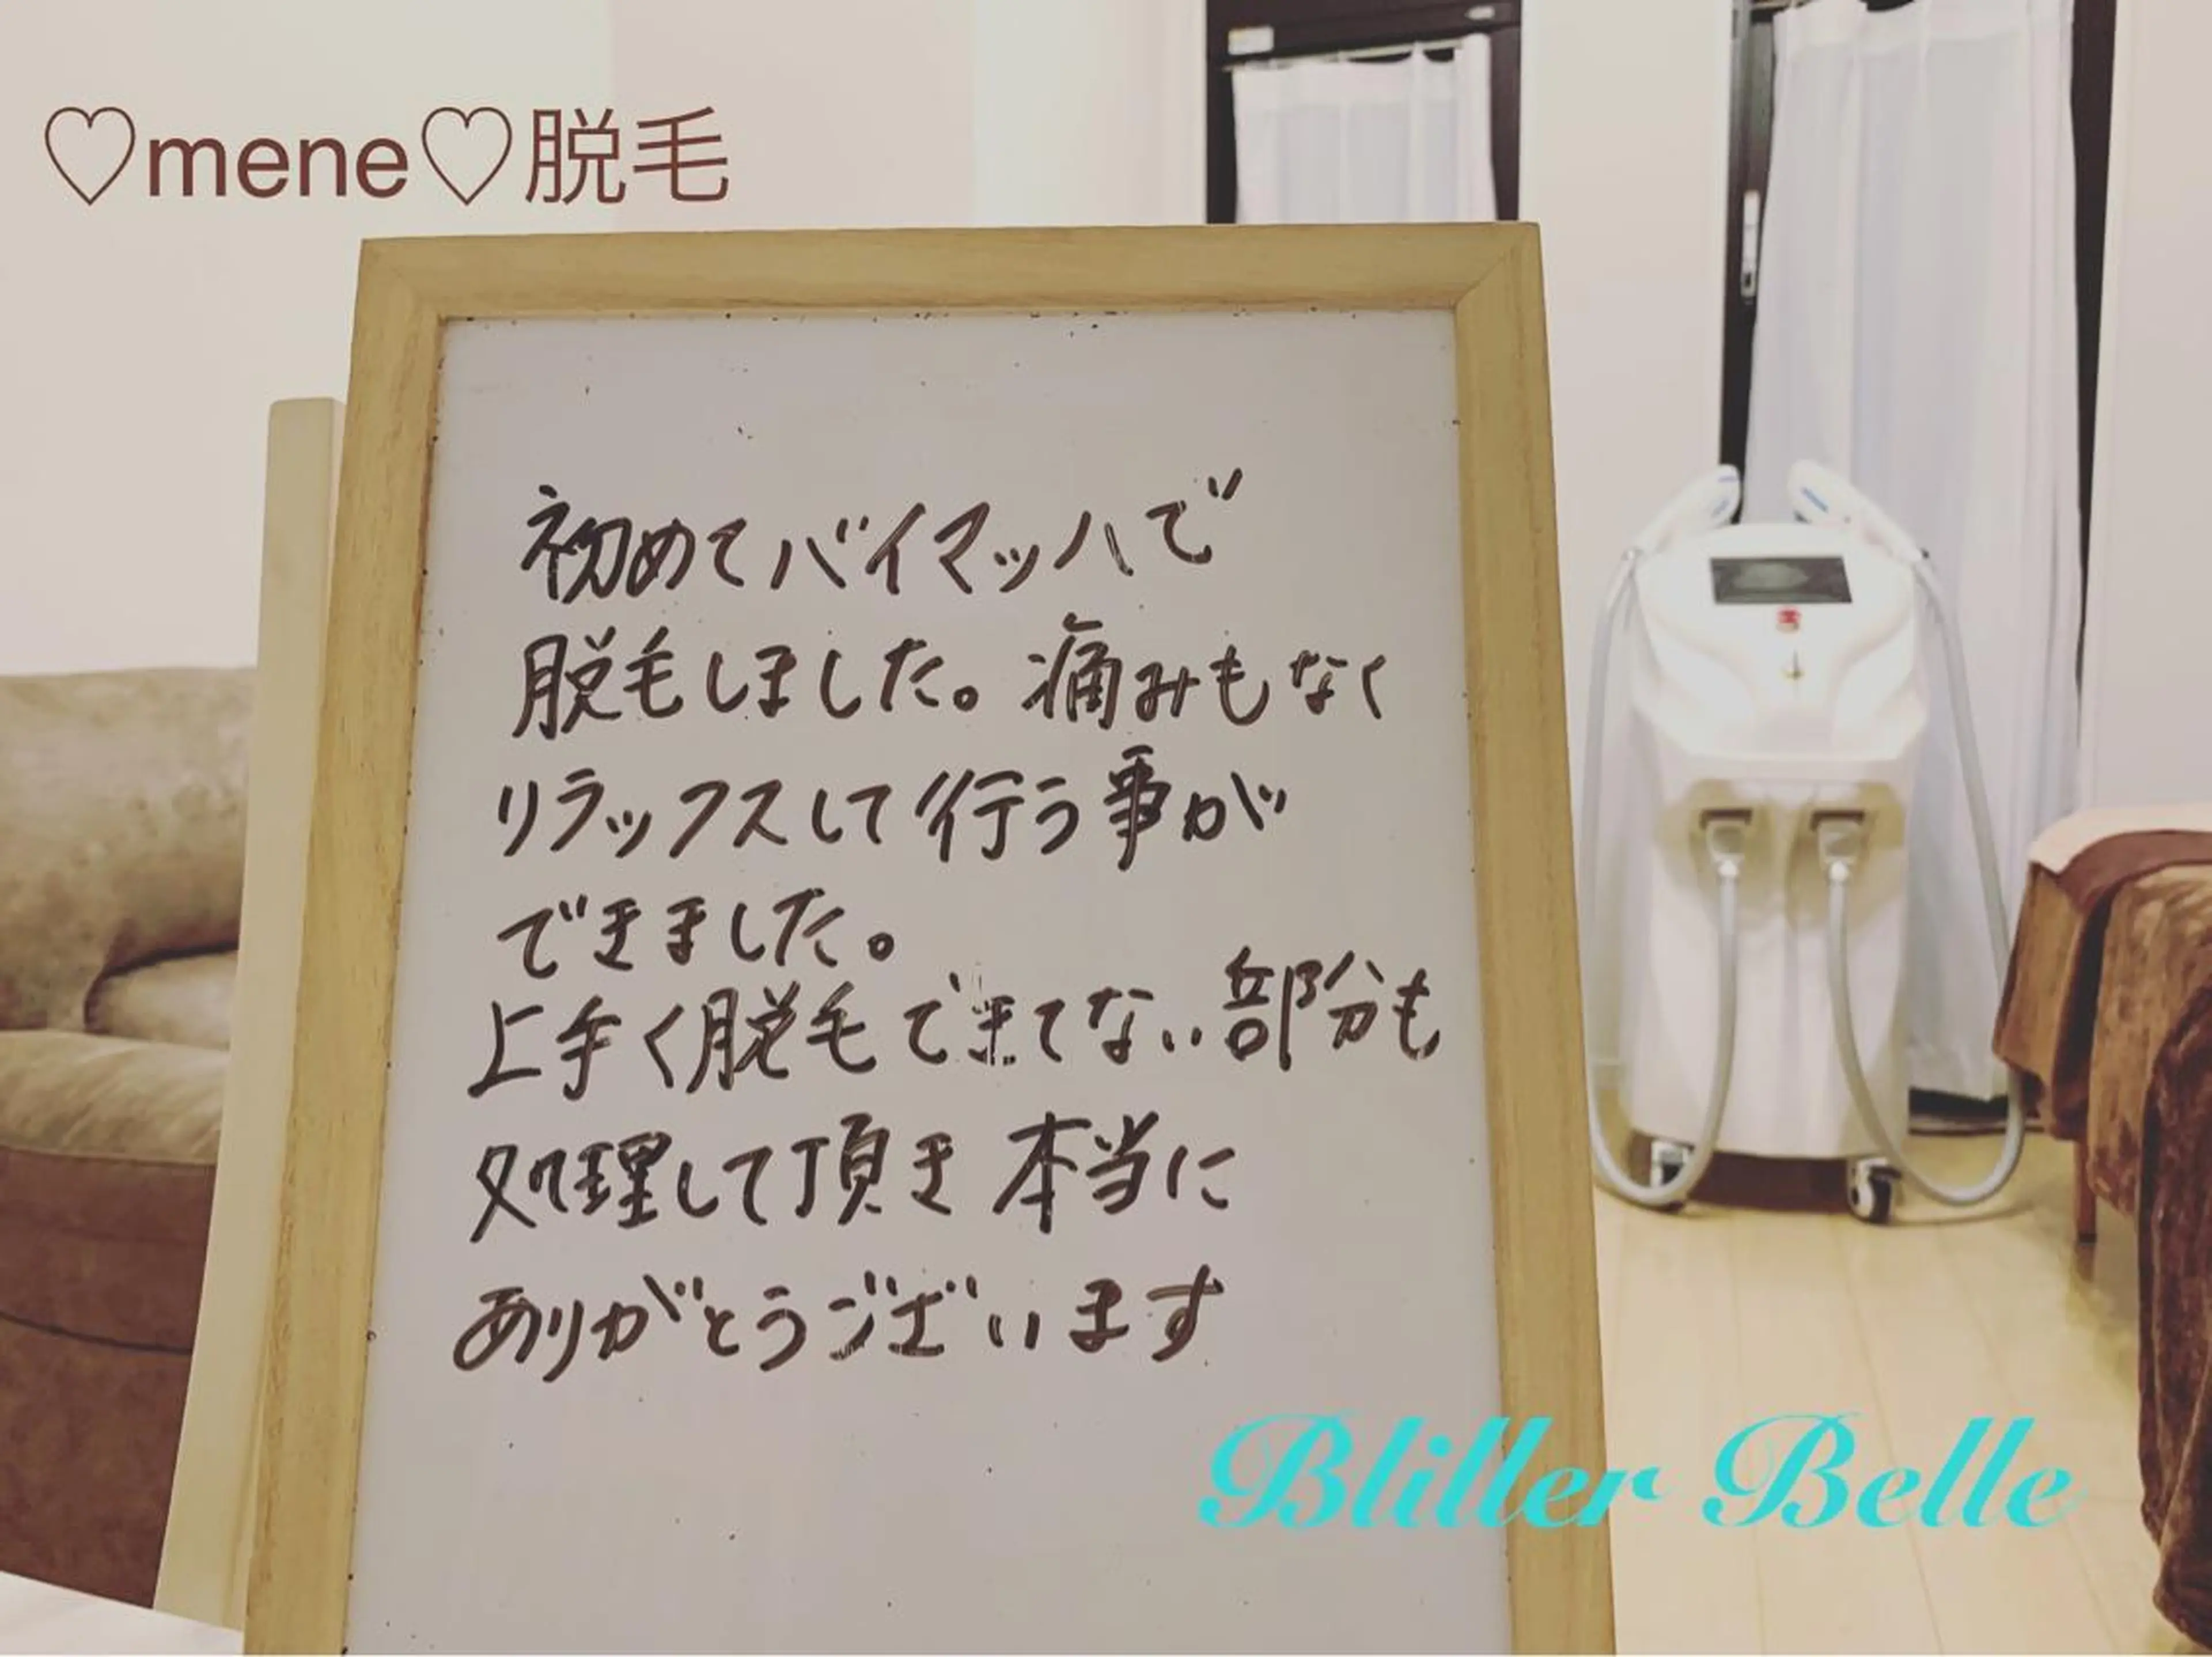 ♡mene♡脱毛
初めてバイマッハで
脱毛しました。痛みもなく
リラックスして行う事が
できました。
上手く脱毛できてない部分も
処理して頂き本当に
ありがとうございます
Bliller Belle